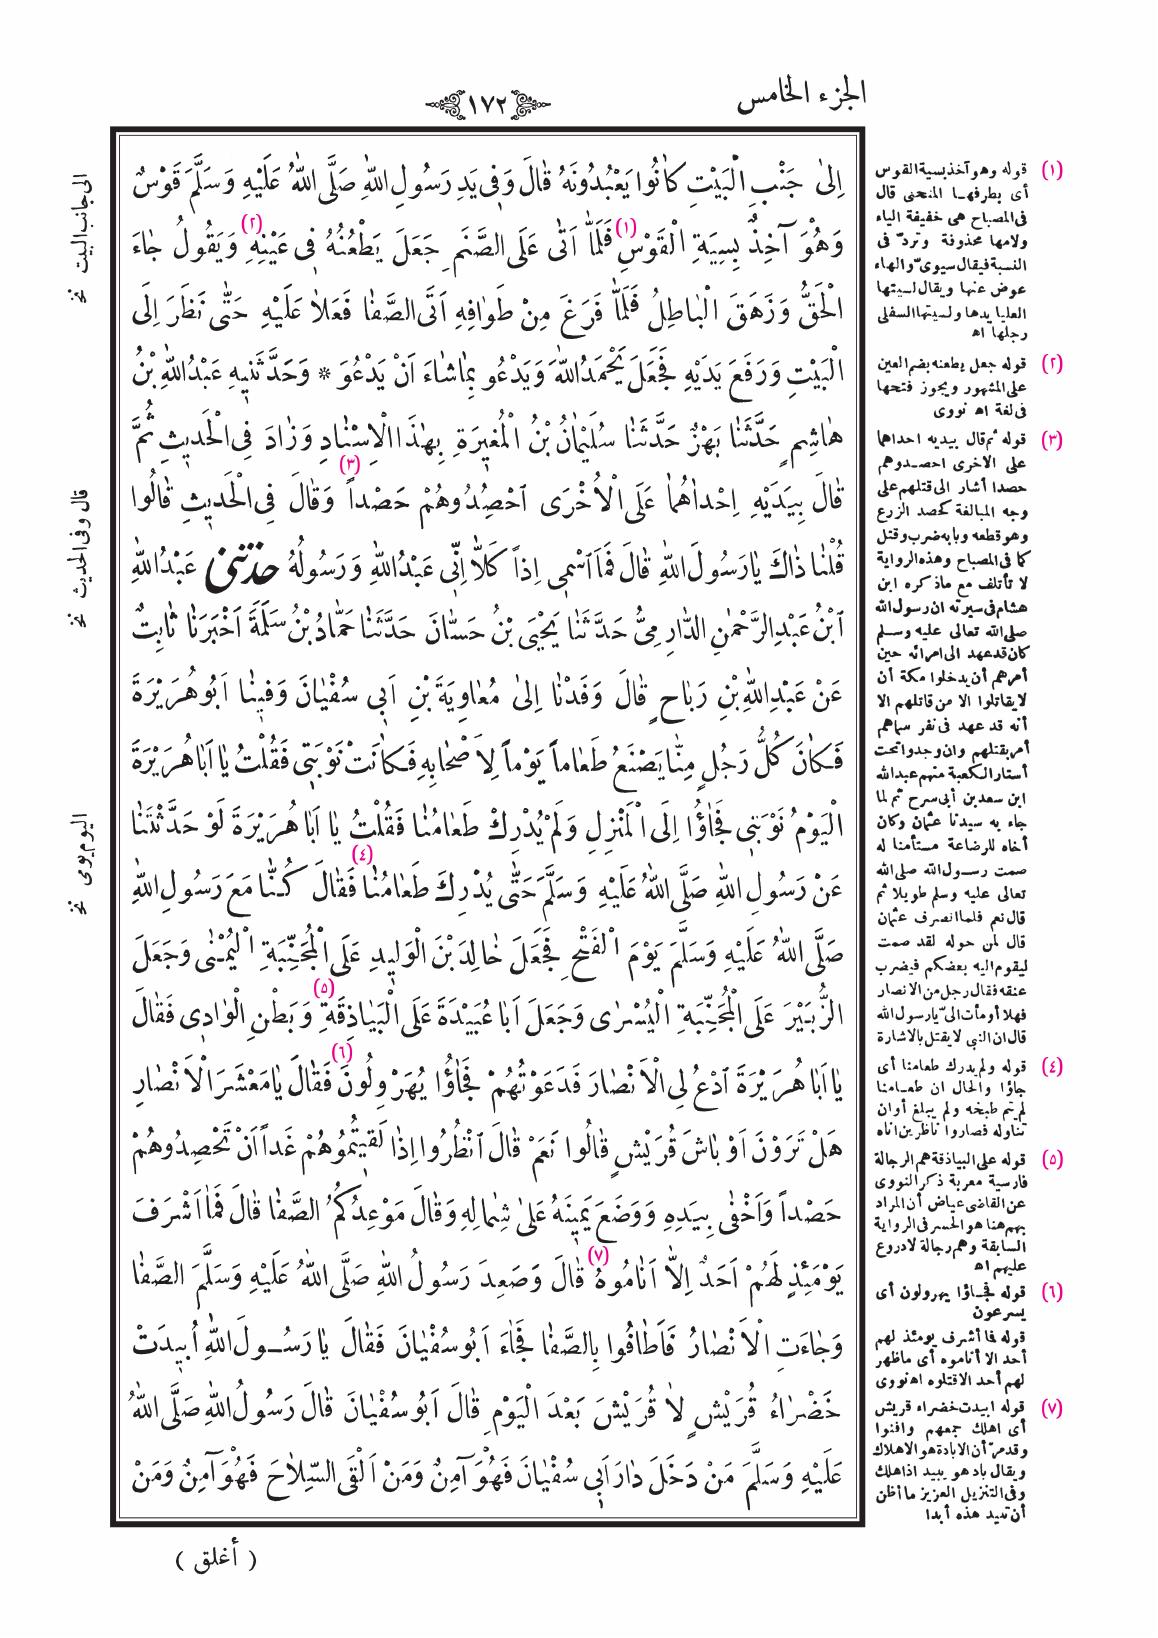 الجزء الخامس
١٧٢
اِلىٰ جَنْبِ الْبَيْتِ كَانُوا يَعْبُدُونَهُ قَالَ وَفِي يَدِ رَسُولِ اللّٰهِ صَلَّى اللّٰهُ عَلَيْهِ وَسَلَّمَ قَوْسٌ
وَهُوَ آخِذٌ بِسِيَةِ الْقَوْسِ (١) فَلَمَّا اَتٰى عَلَى الصَّنَمِ جَعَلَ يَطْعُنُهُ فِي عَيْنِهِ (٢) وَيَقُولُ جَاءَ
الْحَقُّ وَزَهَقَ الْبَاطِلُ فَلَمَّا فَرَغَ مِنْ طَوَافِهِ اَتَى الصَّفَا فَعَلَا عَلَيْهِ حَتّٰى نَظَرَ اِلَى
الْبَيْتِ وَرَفَعَ يَدَيْهِ فَجَعَلَ يَحْمَدُ اللّٰهَ وَيَدْعُو بِمَا شَاءَ اَنْ يَدْعُوَ * وَحَدَّثَنِيهِ عَبْدُ اللّٰهِ بْنُ
هَاشِمٍ حَدَّثَنَا بَهْزٌ حَدَّثَنَا سُلَيْمَانُ بْنُ الْمُغِيرَةِ بِهٰذَا الْاِسْنَادِ وَزَادَ فِي الْحَدِيثِ ثُمَّ
قَالَ بِيَدَيْهِ اِحْدَاهُمَا عَلَى الْاُخْرَى اَحْصِدُوهُمْ حَصْداً (٣) وَقَالَ فِي الْحَدِيثِ قَالُوا
قُلْنَا ذَاكَ يَا رَسُولَ اللّٰهِ قَالَ فَمَا اَسْمِي اِذاً كَلَّا اِنِّي عَبْدُ اللّٰهِ وَرَسُولُهُ حدثنى عَبْدُ اللّٰهِ
اَبْنُ عَبْدِ الرَّحْمٰنِ الدَّارِمِيُّ حَدَّثَنَا يَحْيَى بْنُ حَسَّانَ حَدَّثَنَا حَمَّادُ بْنُ سَلَمَةَ اَخْبَرَنَا ثَابِتٌ
عَنْ عَبْدِ اللّٰهِ بْنِ رَبَاحٍ قَالَ وَفَدْنَا اِلىٰ مُعَاوِيَةَ بْنِ اَبِي سُفْيَانَ وَفِينَا اَبُو هُرَيْرَةَ
فَكَانَ كُلُّ رَجُلٍ مِنَّا يَصْنَعُ طَعَاماً يَوْماً لِاَصْحَابِهِ فَكَانَتْ نَوْبَتِي فَقُلْتُ يَا اَبَا هُرَيْرَةَ
الْيَوْمُ نَوْبَتِي فَجَاؤُا اِلَى الْمَنْزِلِ وَلَمْ يُدْرِكْ طَعَامُنَا فَقُلْتُ يَا اَبَا هُرَيْرَةَ لَوْ حَدَّثْتَنَا
عَنْ رَسُولِ اللّٰهِ صَلَّى اللّٰهُ عَلَيْهِ وَسَلَّمَ حَتّٰى يُدْرِكَ طَعَامُنَا (٤) فَقَالَ كُنَّا مَعَ رَسُولِ اللّٰهِ
صَلَّى اللّٰهُ عَلَيْهِ وَسَلَّمَ يَوْمَ الْفَتْحِ فَجَعَلَ خَالِدَ بْنَ الْوَلِيدِ عَلَى الْمُجَنِّبَةِ الْيُمْنٰى وَجَعَلَ
الزُّبَيْرَ عَلَى الْمُجَنِّبَةِ الْيُسْرٰى وَجَعَلَ اَبَا عُبَيْدَةَ عَلَى الْبَيَاذِقَةِ (٥) وَبَطْنِ الْوَادِي فَقَالَ
يَا اَبَا هُرَيْرَةَ اَدْعُ لِي الْاَنْصَارَ فَدَعَوْتُهُمْ فَجَاؤُا يُهَرْوِلُونَ (٦) فَقَالَ يَا مَعْشَرَ الْاَنْصَارِ
هَلْ تَرَوْنَ اَوْبَاشَ قُرَيْشٍ قَالُوا نَعَمْ قَالَ اَنْظُرُوا اِذَا لَقِيتُمُوهُمْ غَداً اَنْ تَحْصِدُوهُمْ
حَصْداً وَاَخْفٰى بِيَدِهِ وَوَضَعَ يَمِينَهُ عَلىٰ شِمَالِهِ وَقَالَ مَوْعِدُكُمُ الصَّفَا قَالَ فَمَا اَشْرَفَ
يَوْمَئِذٍ لَهُمْ اَحَدٌ اِلَّا اَنَامُوهُ (٧) قَالَ وَصَعِدَ رَسُولُ اللّٰهِ صَلَّى اللّٰهُ عَلَيْهِ وَسَلَّمَ الصَّفَا
وَجَاءَتِ الْاَنْصَارُ فَاَطَافُوا بِالصَّفَا فَجَاءَ اَبُو سُفْيَانَ فَقَالَ يَا رَسُولَ اللّٰهِ اُبِيدَتْ
خَضْرَاءُ قُرَيْشٍ لَا قُرَيْشَ بَعْدَ الْيَوْمِ قَالَ اَبُو سُفْيَانَ قَالَ رَسُولُ اللّٰهِ صَلَّى اللّٰهُ
عَلَيْهِ وَسَلَّمَ مَنْ دَخَلَ دَارَ اَبِي سُفْيَانَ فَهُوَ آمِنٌ وَمَنْ اَلْقَى السِّلَاحَ فَهُوَ آمِنٌ وَمَنْ
( أغلق )
(١) قوله وهو آخذ بسية القوس
أى بطرفها المنحنى قال
فى المصباح هى خفيفة الياء
ولامها محذوفة وتردّ فى
النسبة فيقال سيوىّ والهاء
عوض عنها ويقال لسيتها
العليا يدها ولسيتها السفلى
رجلها اه
(٢) قوله جعل يطعنه بضم العين
على المشهور ويجوز فتحها
فى لغة اه نووى
(٣) قوله ثم قال بيديه احداهما
على الاخرى احصدوهم
حصدا أشار الى قتلهم على
وجه المبالغة كحصد الزرع
وهو قطعه وبابه ضرب وقتل
كما فى المصباح وهذه الرواية
لا تأتلف مع ماذكره ابن
هشام فى سيرته ان رسول الله
صلى الله تعالى عليه وسلم
كان قد عهد الى امرائه حين
أمرهم أن يدخلوا مكة أن
لا يقاتلوا الا من قاتلهم الا
أنه قد عهد فى نفر سماهم
أمر بقتلهم وان وجدوا تحت
أستار الكعبة منهم عبدالله
ابن سعد بن أبى سرح ثم لما
جاء به سيدنا عثمان وكان
أخاه للرضاعة مستأمنا له
صمت رسول الله صلى الله
تعالى عليه وسلم طويلا ثم
قال نعم فلما انصرف عثمان
قال لمن حوله لقد صمت
ليقوم اليه بعضكم فيضرب
عنقه فقال رجل من الانصار
فهلا أومأت الىّ يا رسول الله
قال ان النبى لا يقتل بالاشارة
(٤) قوله ولم يدرك طعامنا أى
جاؤا والحال ان طعامنا
لم يتم طبخه ولم يبلغ أوان
تناوله فصاروا ناظرين اناه
(٥) قوله على البياذقة هم الرجالة
فارسية معربة ذكر النووى
عن القاضى عياض أن المراد
بهم هنا هو الحسر فى الرواية
السابقة وهم رجالة لا دروع
عليهم اه
(٦) قوله فجاؤا يهرولون أى
يسرعون
قوله فما أشرف يومئذ لهم
أحد الا أناموه أى ماظهر
لهم أحد الا قتلوه اه نووى
(٧) قوله ابيدت خضراء قريش
أى اهلك جمعهم وافنوا
وقد مرّ أن الابادة هو الاهلاك
ويقال باد هو يبيد اذا هلك
وفى التنزيل العزيز ما أظن
أن تبيد هذه أبدا
الى جانب البيت نخ
قال وفى الحديث نخ
اليوم يومى نخ